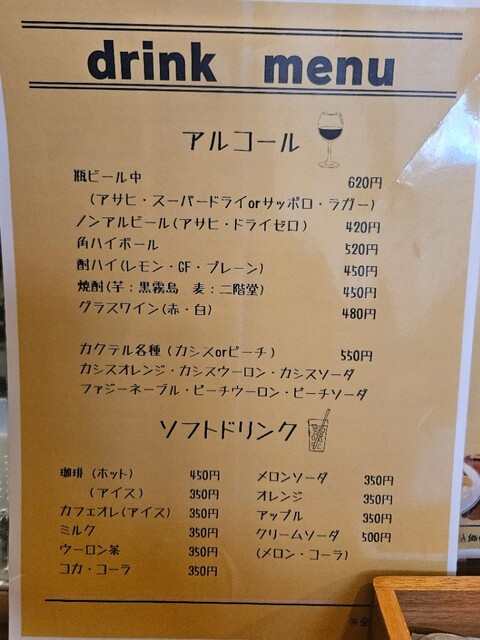 drink menu
アルコール
瓶ビール中 620円
(アサヒ・スーパードライorサッポロ・ラガー)
ノンアルビール(アサヒ・ドライゼロ) 420円
角ハイボール 520円
酎ハイ(レモン・GF・プレーン) 450円
焼酎(芋:黒霧島 麦:二階堂) 450円
グラスワイン(赤・白) 480円
カクテル各種(カシスorピーチ) 550円
カシスオレンジ・カシスウーロン・カシスソーダ
ファジーネーブル・ピーチウーロン・ピーチソーダ
ソフトドリンク
珈琲(ホット) 450円
(アイス) 350円
カフェオレ(アイス) 350円
ミルク 350円
ウーロン茶 350円
コカ・コーラ 350円
メロンソーダ 350円
オレンジ 350円
アップル 350円
クリームソーダ 500円
(メロン・コーラ)